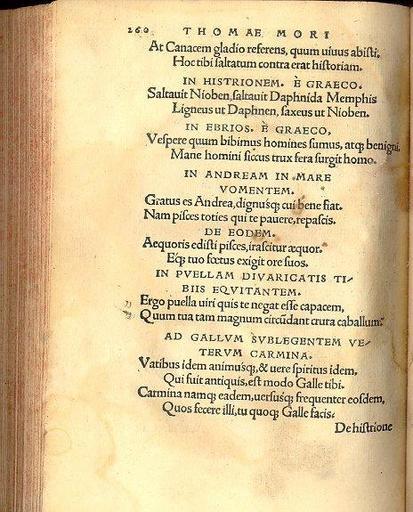 260 THOMAE MORI
At Canacem gladio referens, quum uiuus abisti,
Hoc tibi saltatum contra erat historiam.
IN HISTRIONEM. È GRAECO.
Saltauit Nioben, saltauit Daphnida Memphis
Ligneus ut Daphnen, saxeus ut Nioben.
IN EBRIOS. È GRAECO.
Vespere quum bibimus homines sumus, atq; benigni.
Mane homini siccus trux fera surgit homo.
IN ANDREAM IN MARE
VOMENTEM.
Gratus es Andrea, dignusq; cui bene fiat.
Nam pisces toties qui te pauere, repascis.
DE EODEM.
Aequoris edisti pisces, irascitur æquor.
Eq; tuo fœtus exigit ore suos.
IN PVELLAM DIVARICATIS TI-
BIIS EQVITANTEM.
Ergo puella uiri quis te negat esse capacem,
Quum tua tam magnum circũdant crura caballum?
AD GALLVM SVBLEGENTEM VE-
TERVM CARMINA.
Vatibus idem animusq;, & uere spiritus idem,
Qui fuit antiquis, est modo Galle tibi.
Carmina namq; eadem, uersusq; frequenter eosdem,
Quos fecere illi, tu quoq; Galle facis.
De histrione